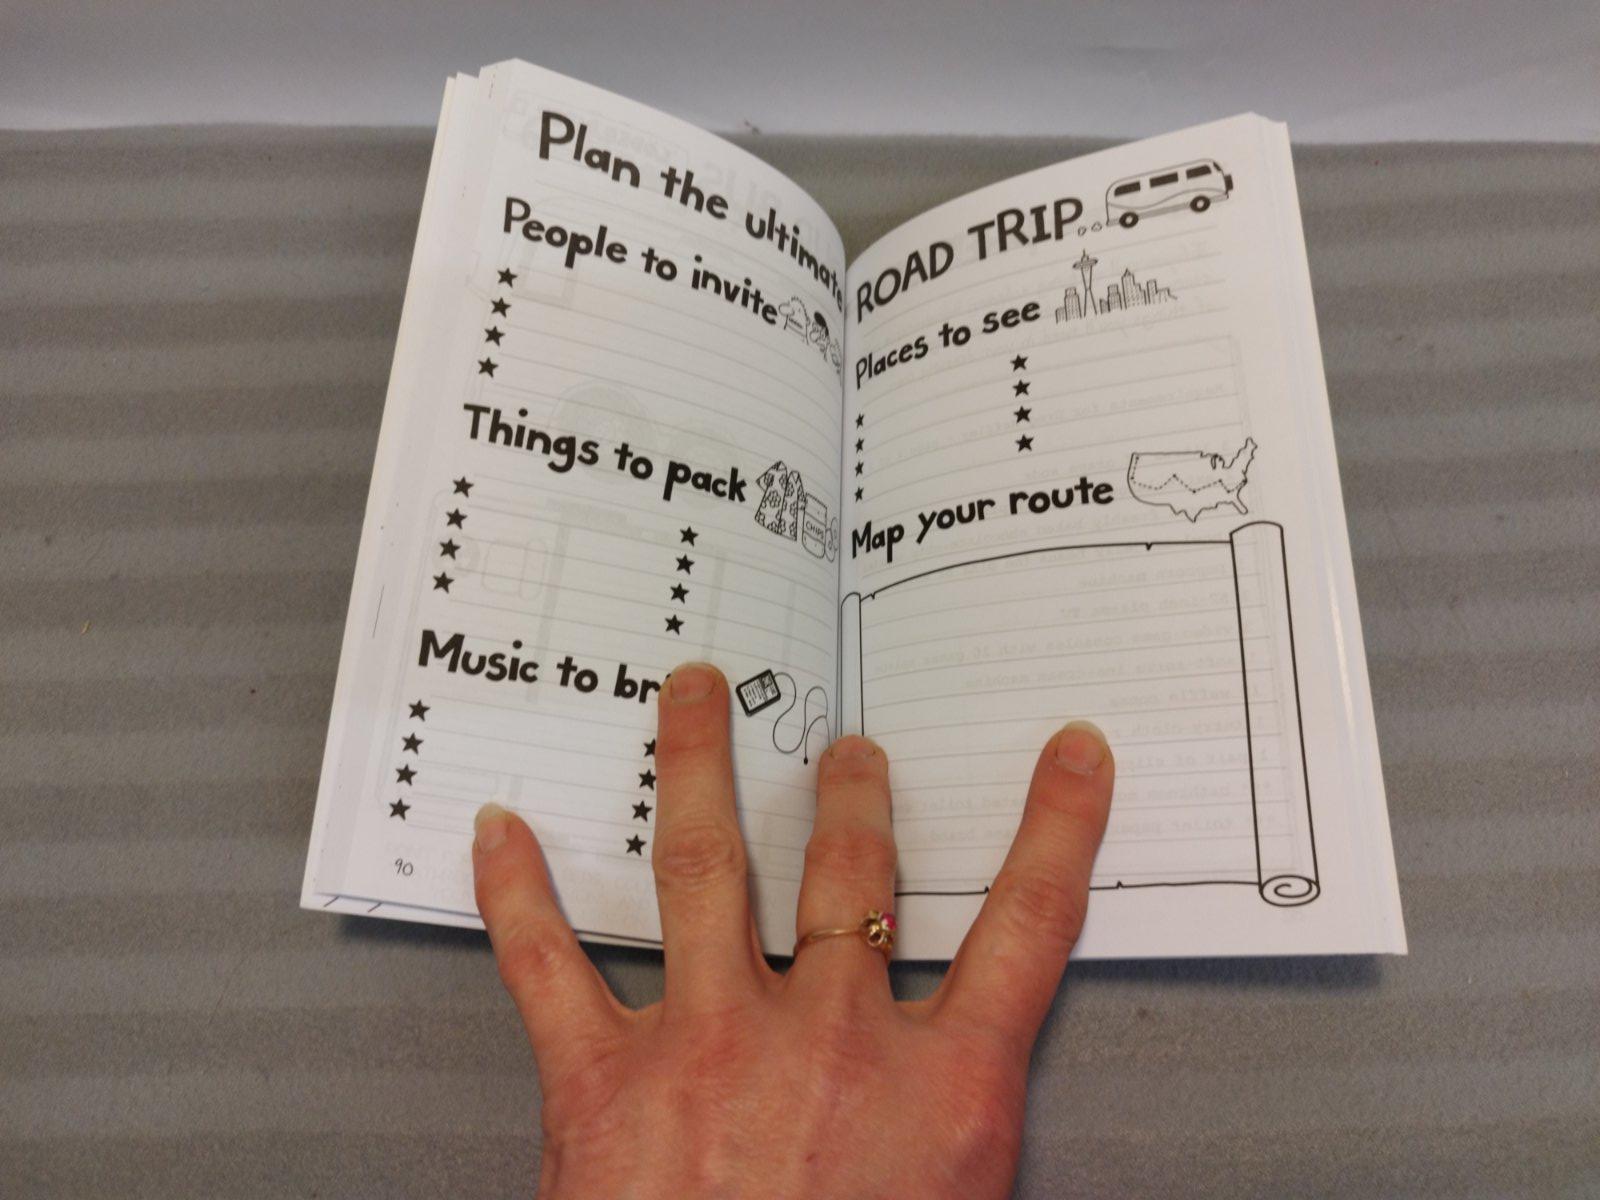 Plan the ultimate
People to invite
Things to pack
CHIPS
Music to
90
ROAD TRIP...
Places to see
Map your route